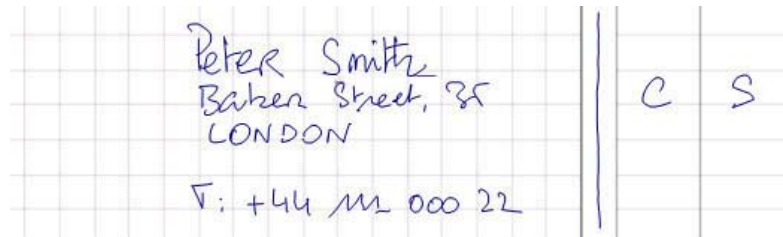 Peter Smith
Baker Street, 35
LONDON
T: +44 111 000 22
C S